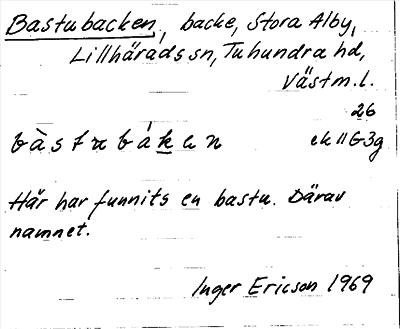 Bastubacken, backe, Stora Alby,
Lillhärads sn, Tuhundra hd,
Västm. l.
26
bàstubáken ek 11 G 3g
Här har funnits en bastu. Därav
namnet.
Inger Ericson 1969